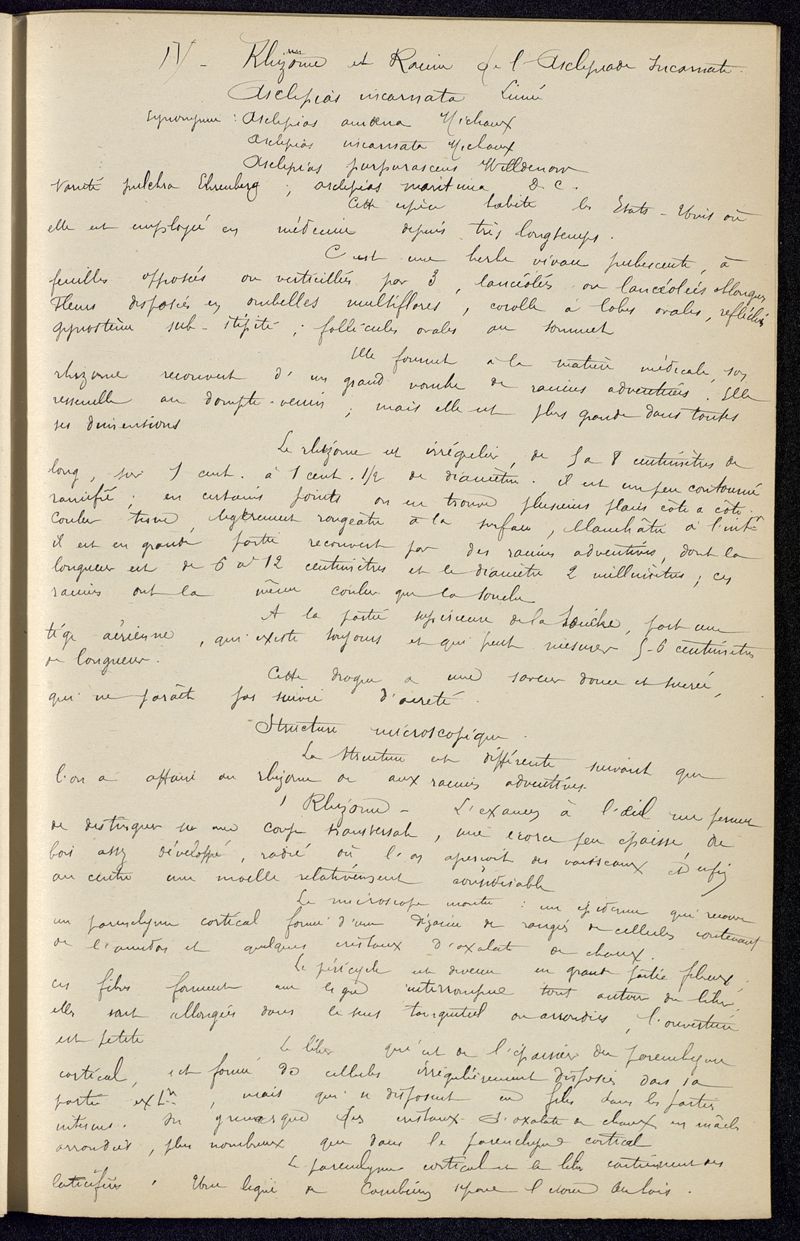 IV - Rhizome et Racine de l'Asclepiade Incarnate.
Asclepias incarnata Linné
Synonymie : Asclepias amoena Michaux
Asclepias incarnata Michaux
Asclepias purpurascens Willdenow
Varieté pulchra Ehrenberg ; asclepias maritima D. C.
Cette espèce habite les Etats-Unis où
elle est employée en médecine depuis très longtemps.
C'est une herbe vivace pubescente, à
feuilles opposées ou verticillées par 3, lancéolées ou lancéolées oblongues
Fleurs disposées en ombelles multiflores, corolle à lobes ovales, refléchis
gynostème sub-stipité ; follicules ovales au sommet
Elle fournit à la matière médicale son
rhizome recouvert d'un grand nombre de racines adventives. Elle
ressemble au dompte-venin ; mais elle est plus grande dans toutes
ses dimensions
Le rhizome est irrégulier, de 5 à 8 centimètres de
long, sur 1 cent. à 1 cent. 1/2 de diamètre. il est un peu contourné
ramifié ; en certains points on en trouve plusieurs placés côte à côte.
Couleur terne, légèrement rougeâtre à la surface, blanchâtre à l'intr
il est en grande partie recouvert par des racines adventives, dont la
longueur est de 6 à 12 centimètres et le diamètre 2 millimètres ; ces
racines ont la même couleur que la souche
A la partie supérieure de la souche, part une
tige aérienne, qui existe toujours et qui peut mesurer 5-6 centimètres
de longueur.
Cette drogue a une saveur douce et sucrée,
qui ne paraît pas suivie d'acreté.
Structure microscopique.
La structure est différente suivant que
l'on a affaire au rhizome ou aux racines adventives.
Rhizome - L'examen à l'œil nu permet
de distinguer sur une coupe transversale, une écorce peu épaisse, du
bois assez développé, radié où l'on aperçoit des vaisseaux et enfin
au centre une moelle relativement considérable
Le microscope montre : un épiderme qui recouvre
un parenchyme cortical formé d'une dizaine de rangées de cellules contenant
de l'amidon et quelques cristaux d'oxalate de chaux.
Le péricycle est devenu en grande partie fibreux ;
ces fibres forment une ligne interrompue tout autour du liber,
elles sont allongées dans le sens tangentiel ou arrondies, l'ouverture
est petite
Le liber qui est de l'épaisseur du parenchyme
cortical, est formé de cellules irrégulièrement disposées dans sa
partie extre, mais qui se disposent en files dans les parties
internes. On y remarque des cristaux d'oxalate de chaux en mâcles
arrondies, plus nombreux que dans le parenchyme cortical
Le parenchyme cortical et le liber contiennent des
laticifères. Une ligne de cambium sépare l'écorce du bois.